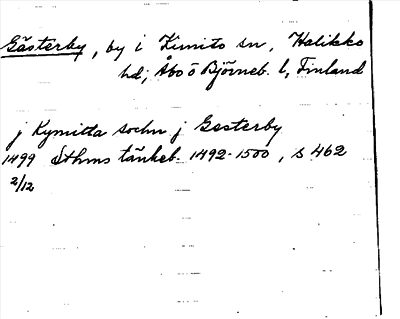 Gästerby, by i Kimito sn, Halikko
hd; Åbo o Björneb. l, Finland
j Kymitta sochn j Gesterby
1499 Sthms tänkeb. 1492-1500, s 462
2/12